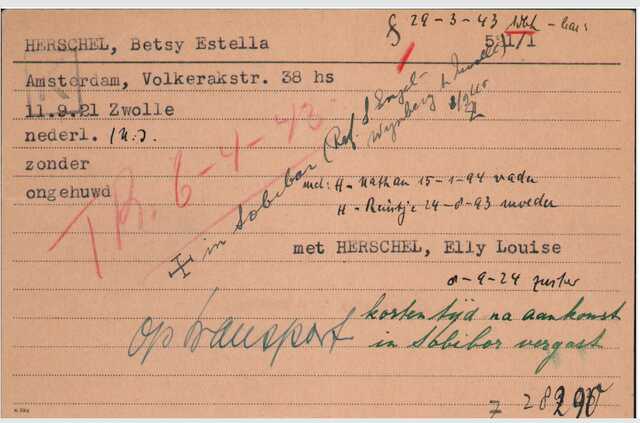 § 29-3-43 Wbk
HERSCHEL, Betsy Estella 531/1
Amsterdam, Volkerakstr. 38 hs
11.9.21 Zwolle
nederl. (N.J.)
zonder
ongehuwd
T.B. 6-4-43
✝ in Sobibor (Ref. S Engel-
Wynberg te Zwolle)
med: H- Nathan 15-1-94 vader
H- Reintje 24-8-93 moeder
met HERSCHEL, Elly Louise
8-9-24 zuster
op transport
korten tijd na aankomst
in Sobibor vergast